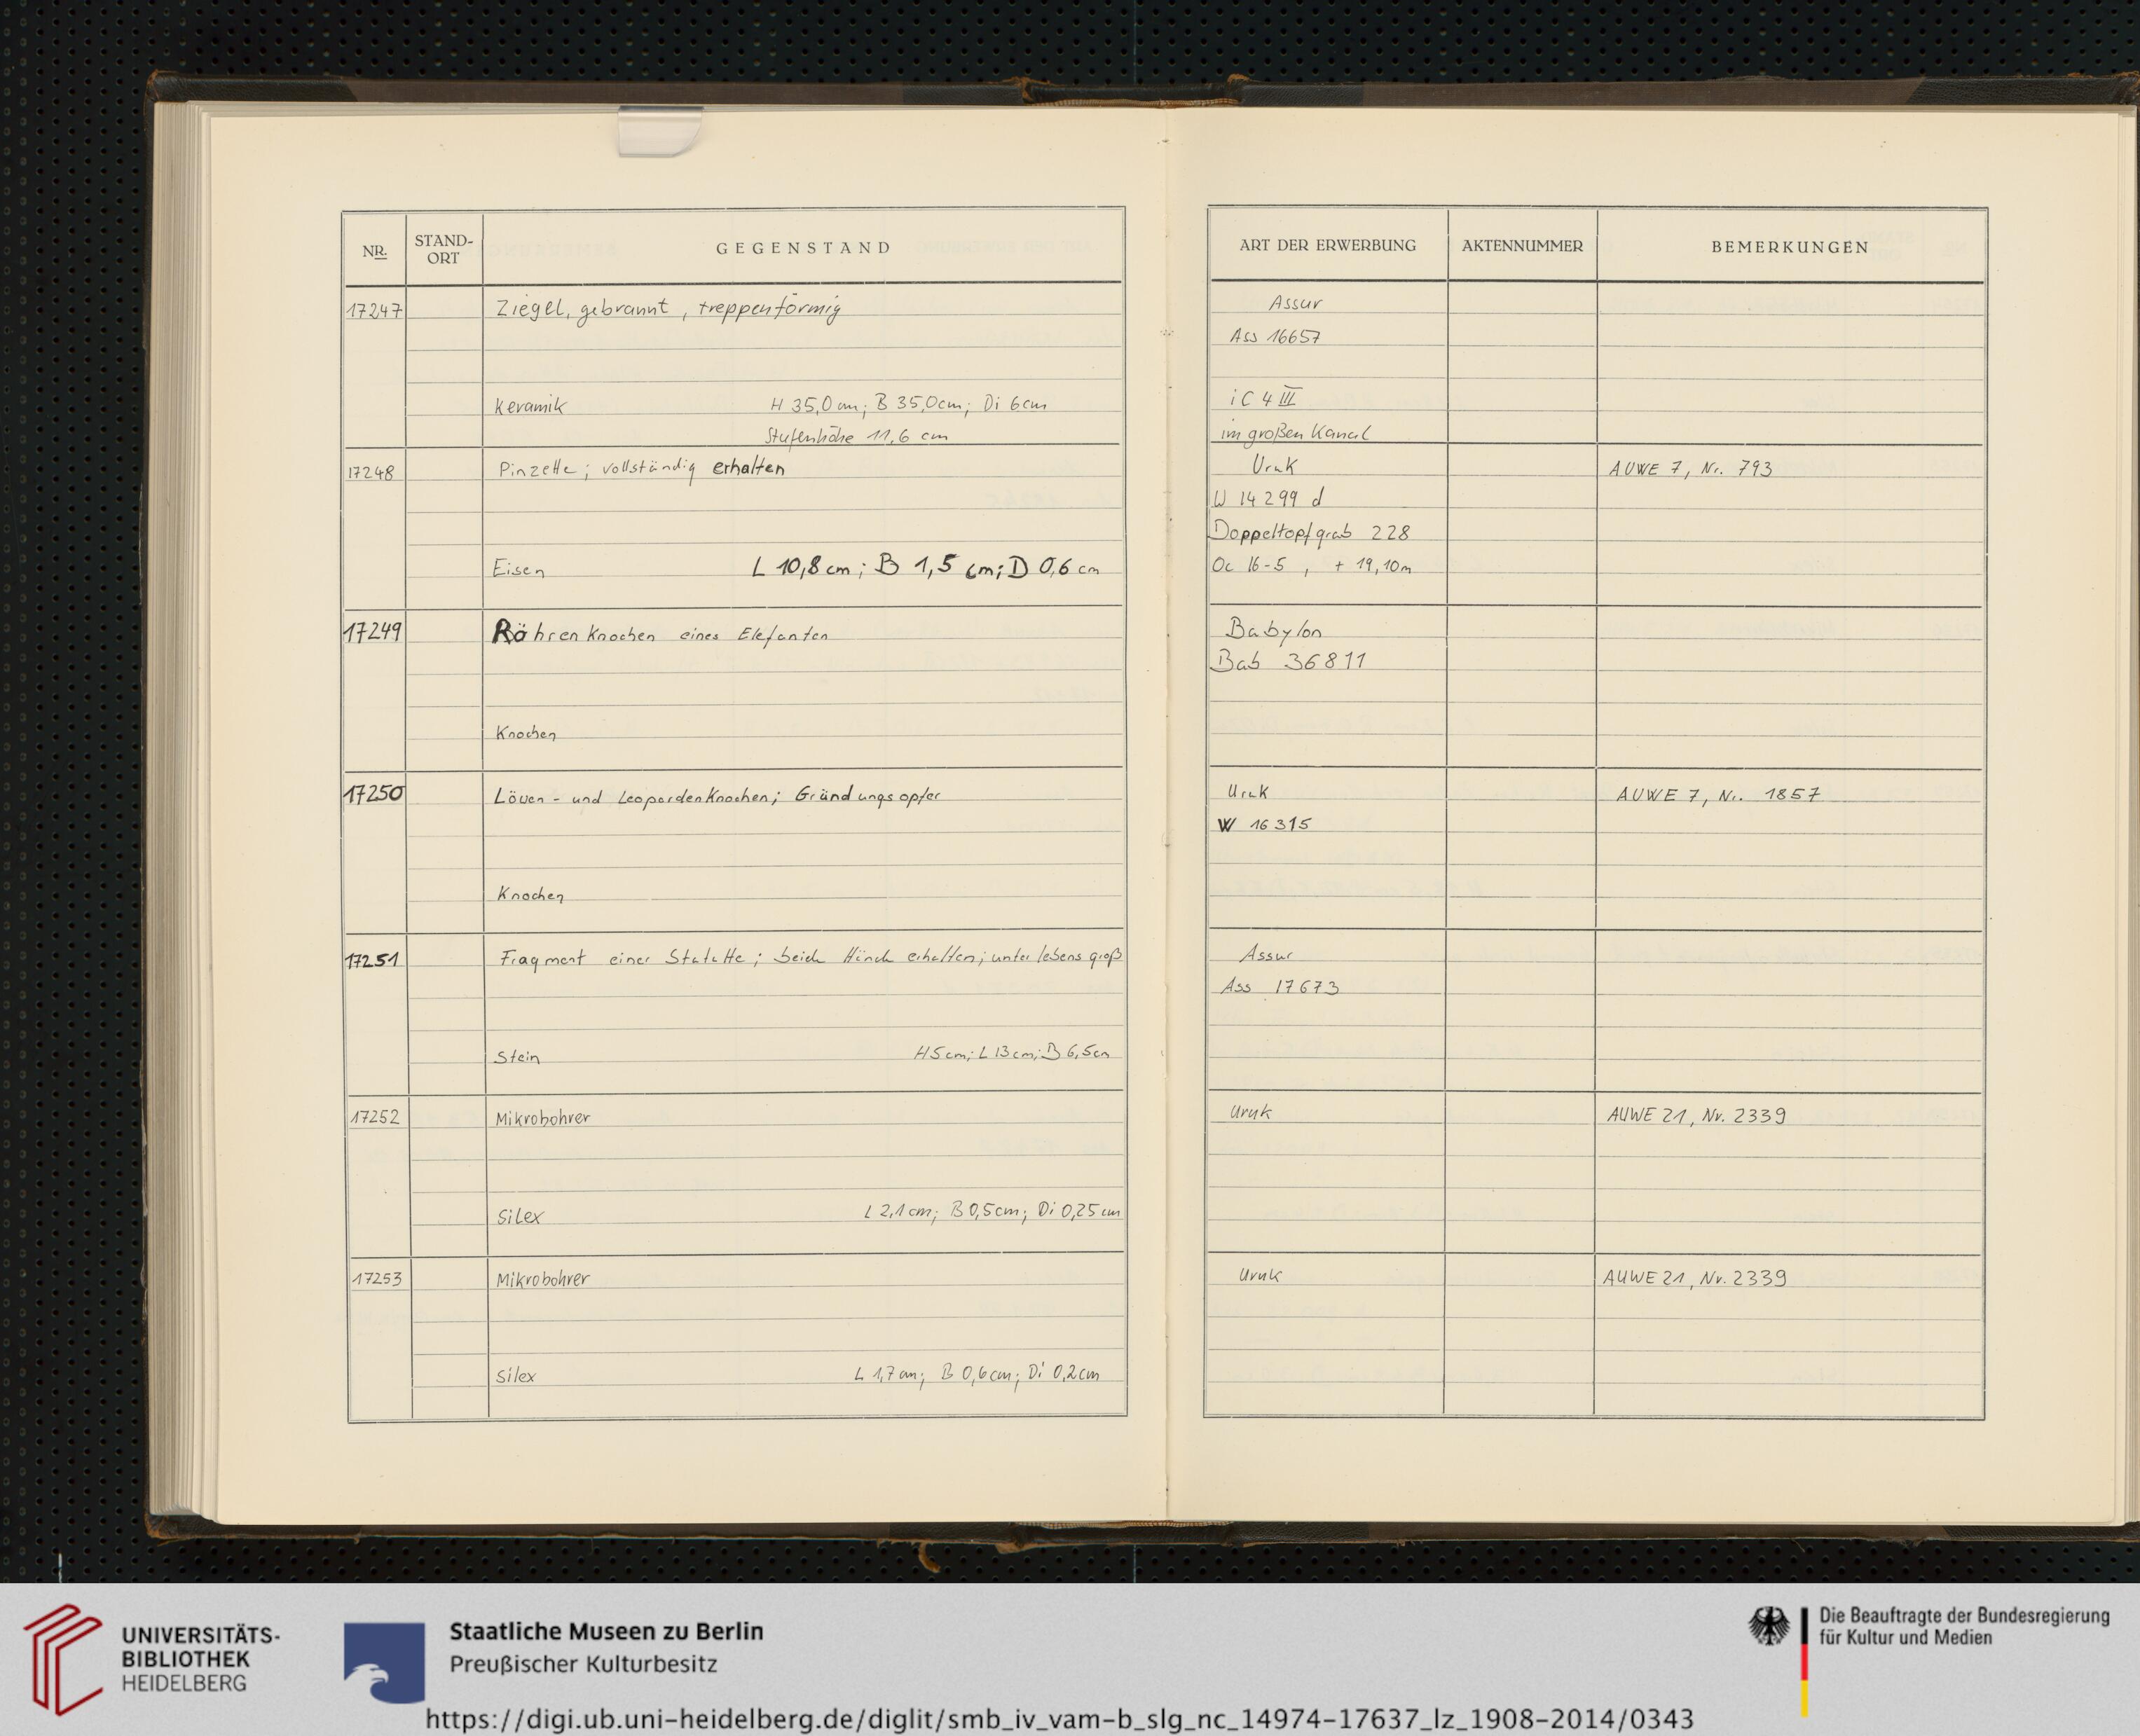 NR.
STAND-
ORT
GEGENSTAND
17247
Ziegel, gebrannt, treppenförmig
Keramik H 35,0 cm; B 35,0cm; Di 6cm
Stufenhöhe 11,6 cm
17248
Pinzette; vollständig erhalten
Eisen L 10,8 cm; B 1,5 cm; D 0,6 cm
17249
Röhrenknochen eines Elefanten
Knochen
17250
Löwen- und Leopardenknochen; Gründungsopfer
Knochen
17251
Fragment einer Statuette; beide Hände erhalten; unterlebensgroß
Stein H 5 cm; L 13 cm; B 6,5cm
17252
Mikrobohrer
Silex L 2,1 cm; B 0,5cm; Di 0,25 cm
17253
Mikrobohrer
Silex L 1,7 cm; B 0,6 cm; Di 0,2 cm
ART DER ERWERBUNG
AKTENNUMMER
BEMERKUNGEN
Assur
Ass 16657
iC 4 III
im großen Kanal
Uruk AUWE 7, Nr. 793
W 14299 d
Doppeltopfgrab 228
Oc 16-5, + 19,10m
Babylon
Bab 36811
Uruk AUWE 7, Nr. 1857
W 16315
Assur
Ass 17673
Uruk AUWE 21, Nr. 2339
Uruk AUWE 21, Nr. 2339
UNIVERSITÄTS-
BIBLIOTHEK
HEIDELBERG
Staatliche Museen zu Berlin
Preußischer Kulturbesitz
Die Beauftragte der Bundesregierung
für Kultur und Medien
https://digi.ub.uni-heidelberg.de/diglit/smb_iv_vam-b_slg_nc_14974-17637_lz_1908-2014/0343